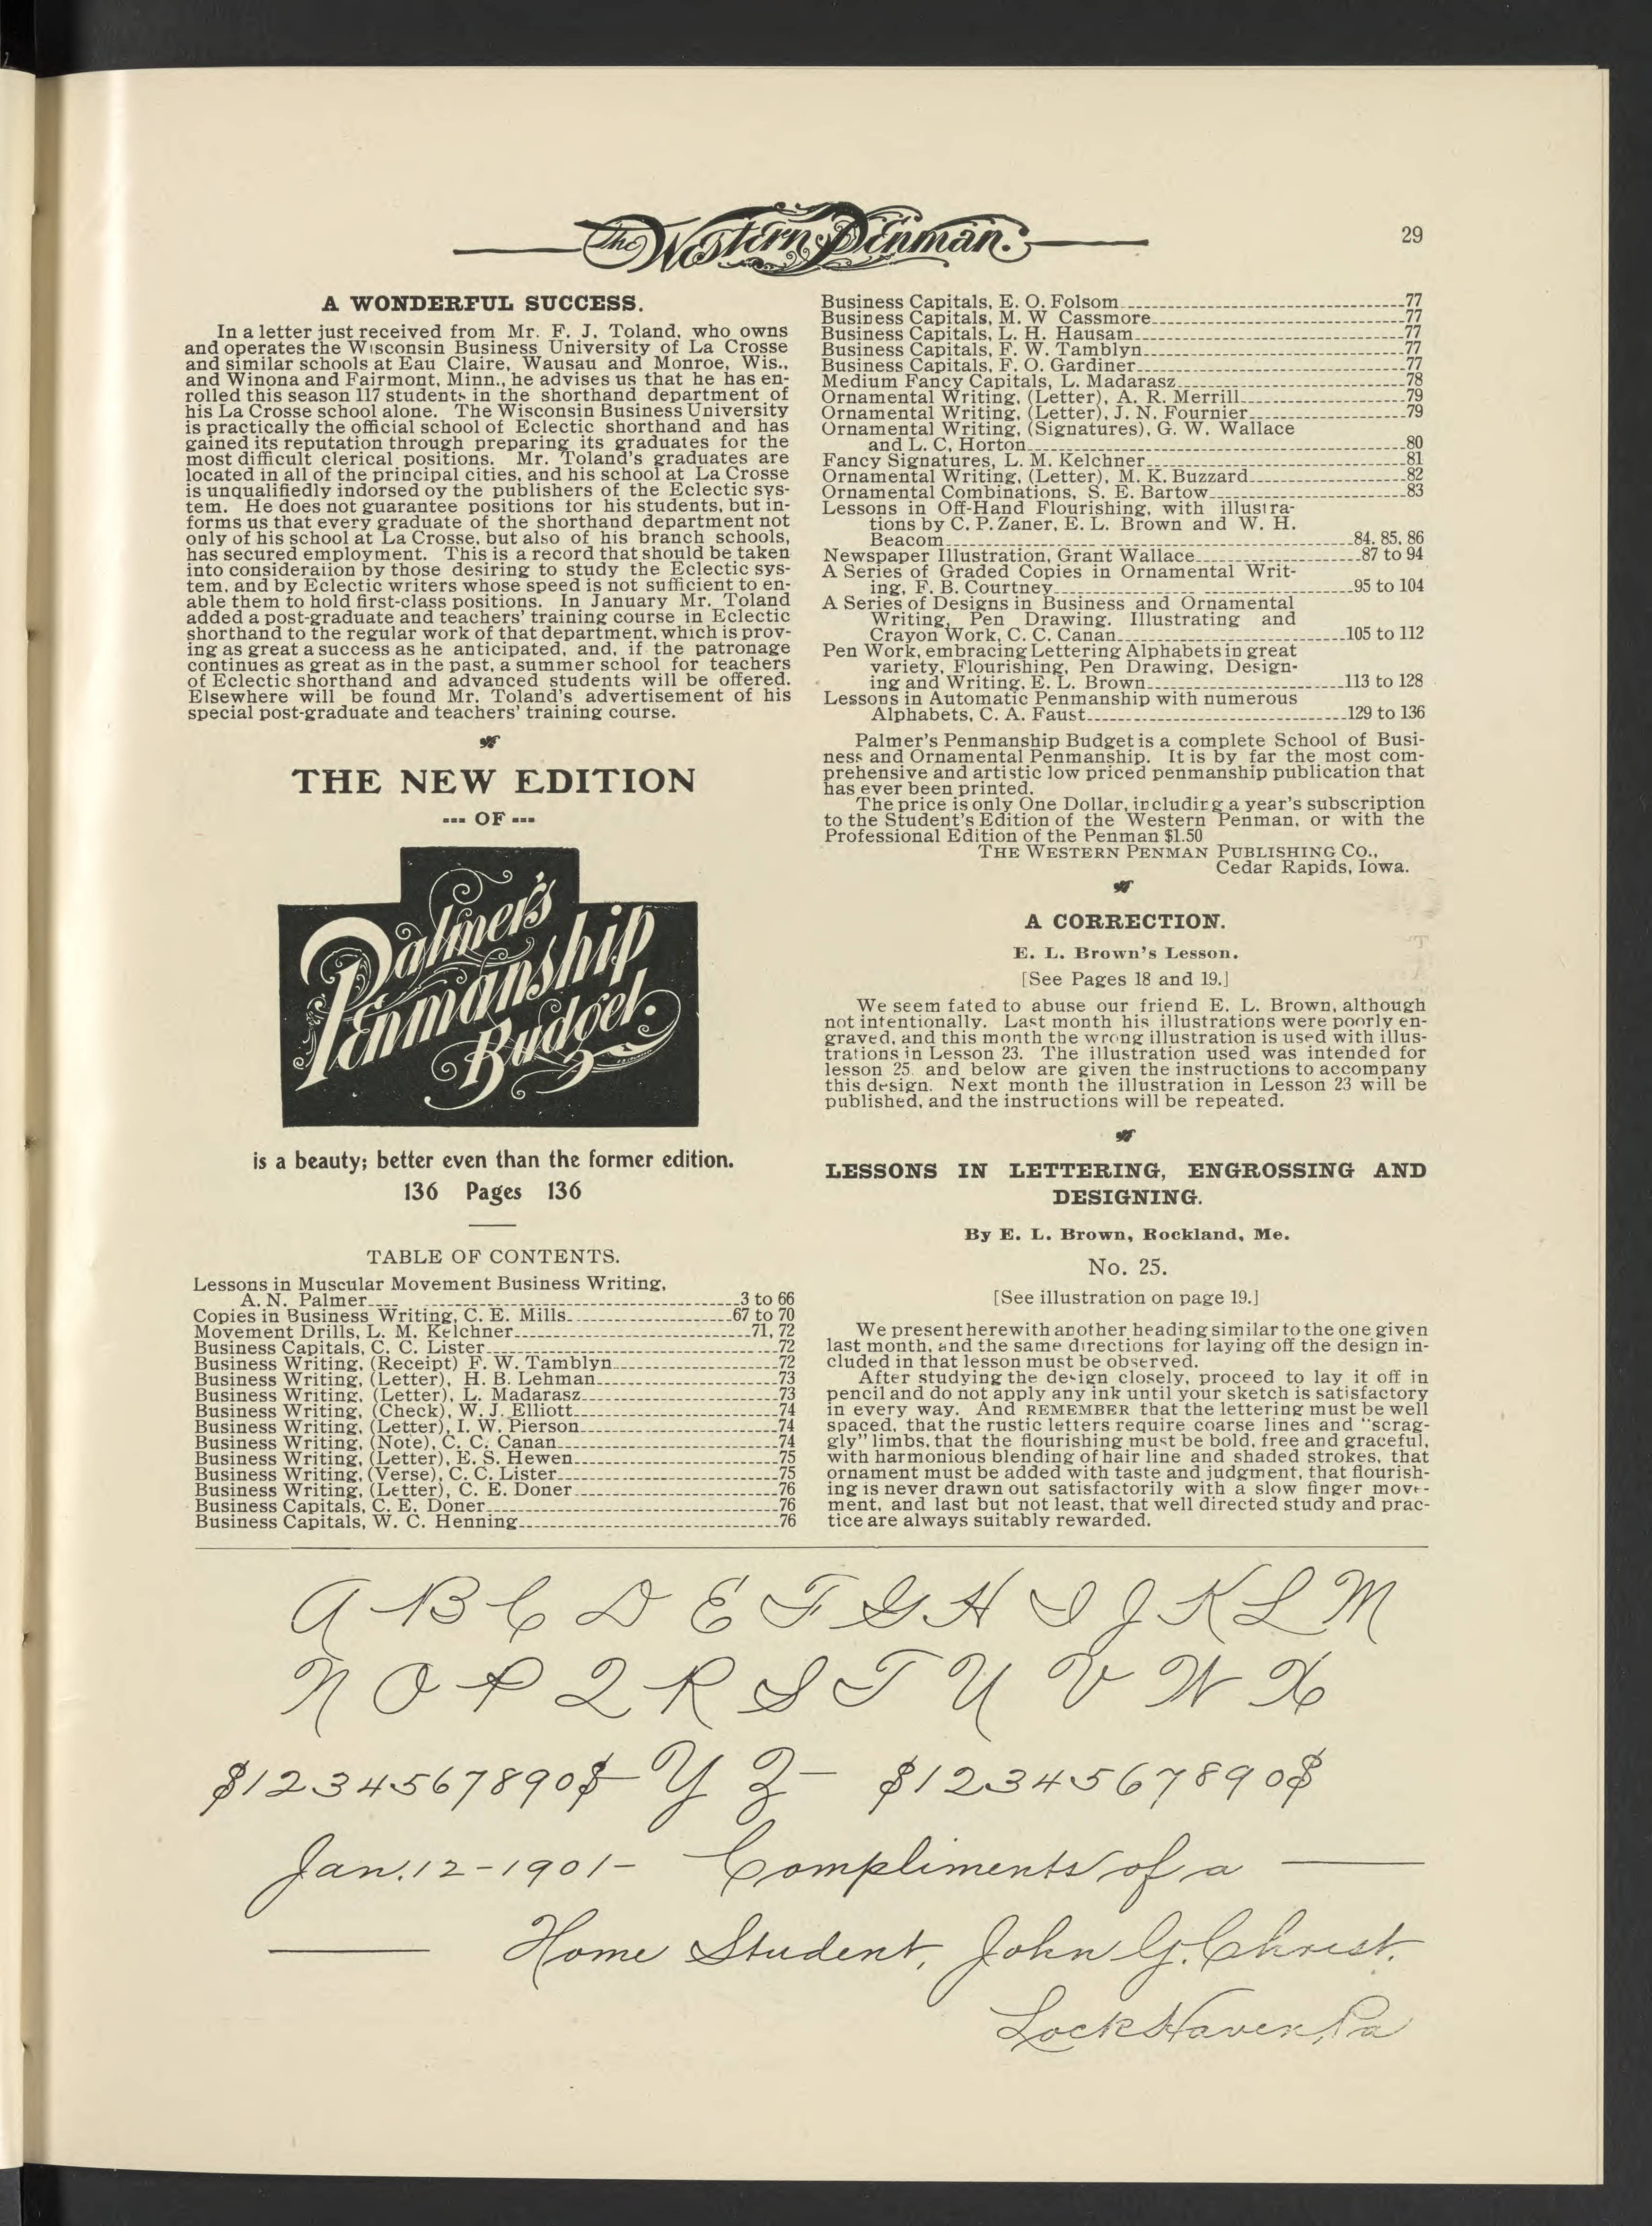 The Western Penman.
29
A WONDERFUL SUCCESS.
In a letter just received from Mr. F. J. Toland, who owns
and operates the Wisconsin Business University of La Crosse
and similar schools at Eau Claire, Wausau and Monroe, Wis.,
and Winona and Fairmont, Minn., he advises us that he has en-
rolled this season 117 students in the shorthand department of
his La Crosse school alone. The Wisconsin Business University
is practically the official school of Eclectic shorthand and has
gained its reputation through preparing its graduates for the
most difficult clerical positions. Mr. Toland's graduates are
located in all of the principal cities, and his school at La Crosse
is unqualifiedly indorsed oy the publishers of the Eclectic sys-
tem. He does not guarantee positions for his students, but in-
forms us that every graduate of the shorthand department not
only of his school at La Crosse, but also of his branch schools,
has secured employment. This is a record that should be taken
into consideration by those desiring to study the Eclectic sys-
tem, and by Eclectic writers whose speed is not sufficient to en-
able them to hold first-class positions. In January Mr. Toland
added a post-graduate and teachers' training course in Eclectic
shorthand to the regular work of that department, which is prov-
ing as great a success as he anticipated, and, if the patronage
continues as great as in the past, a summer school for teachers
of Eclectic shorthand and advanced students will be offered.
Elsewhere will be found Mr. Toland's advertisement of his
special post-graduate and teachers' training course.
THE NEW EDITION
--- OF ---
Palmer's
Penmanship
Budget.
is a beauty; better even than the former edition.
136 Pages 136
TABLE OF CONTENTS.
Lessons in Muscular Movement Business Writing,
A. N. Palmer 3 to 66
Copies in Business Writing, C. E. Mills 67 to 70
Movement Drills, L. M. Kelchner 71, 72
Business Capitals, C. C. Lister 72
Business Writing, (Receipt) F. W. Tamblyn 72
Business Writing, (Letter), H. B. Lehman 73
Business Writing, (Letter), L. Madarasz 73
Business Writing, (Check), W. J. Elliott 74
Business Writing, (Letter), I. W. Pierson 74
Business Writing, (Note), C. C. Canan 74
Business Writing, (Letter), E. S. Hewen 75
Business Writing, (Verse), C. C. Lister 75
Business Writing, (Letter), C. E. Doner 76
Business Capitals, C. E. Doner 76
Business Capitals, W. C. Henning 76
Business Capitals, E. O. Folsom 77
Business Capitals, M. W Cassmore 77
Business Capitals, L. H. Hausam 77
Business Capitals, F. W. Tamblyn 77
Business Capitals, F. O. Gardiner 77
Medium Fancy Capitals, L. Madarasz 78
Ornamental Writing, (Letter), A. R. Merrill 79
Ornamental Writing, (Letter), J. N. Fournier 79
Ornamental Writing, (Signatures), G. W. Wallace
and L. C. Horton 80
Fancy Signatures, L. M. Kelchner 81
Ornamental Writing, (Letter), M. K. Buzzard 82
Ornamental Combinations, S. E. Bartow 83
Lessons in Off-Hand Flourishing, with illustra-
tions by C. P. Zaner, E. L. Brown and W. H.
Beacom 84, 85, 86
Newspaper Illustration, Grant Wallace 87 to 94
A Series of Graded Copies in Ornamental Writ-
ing, F. B. Courtney 95 to 104
A Series of Designs in Business and Ornamental
Writing, Pen Drawing. Illustrating and
Crayon Work, C. C. Canan 105 to 112
Pen Work, embracing Lettering Alphabets in great
variety, Flourishing, Pen Drawing, Design-
ing and Writing, E. L. Brown 113 to 128
Lessons in Automatic Penmanship with numerous
Alphabets, C. A. Faust 129 to 136
Palmer's Penmanship Budget is a complete School of Busi-
ness and Ornamental Penmanship. It is by far the most com-
prehensive and artistic low priced penmanship publication that
has ever been printed.
The price is only One Dollar, including a year's subscription
to the Student's Edition of the Western Penman, or with the
Professional Edition of the Penman $1.50
THE WESTERN PENMAN PUBLISHING CO.,
Cedar Rapids, Iowa.
A CORRECTION.
E. L. Brown's Lesson.
[See Pages 18 and 19.]
We seem fated to abuse our friend E. L. Brown, although
not intentionally. Last month his illustrations were poorly en-
graved, and this month the wrong illustration is used with illus-
trations in Lesson 23. The illustration used was intended for
lesson 25. and below are given the instructions to accompany
this design. Next month the illustration in Lesson 23 will be
published, and the instructions will be repeated.
LESSONS IN LETTERING, ENGROSSING AND
DESIGNING.
By E. L. Brown, Rockland, Me.
No. 25.
[See illustration on page 19.]
We present herewith another heading similar to the one given
last month, and the same directions for laying off the design in-
cluded in that lesson must be observed.
After studying the design closely, proceed to lay it off in
pencil and do not apply any ink until your sketch is satisfactory
in every way. And REMEMBER that the lettering must be well
spaced, that the rustic letters require coarse lines and "scrag-
gly" limbs, that the flourishing must be bold, free and graceful,
with harmonious blending of hair line and shaded strokes, that
ornament must be added with taste and judgment, that flourish-
ing is never drawn out satisfactorily with a slow finger move-
ment, and last but not least, that well directed study and prac-
tice are always suitably rewarded.
A B C D E F G H I J K L M
N O P Q R S T U V W X
$1234567890$ - Y Z - $1234567890$
Jan. 12 - 1901 - Compliments of a
Home Student, John G. Christ.
Lock Haven, Pa